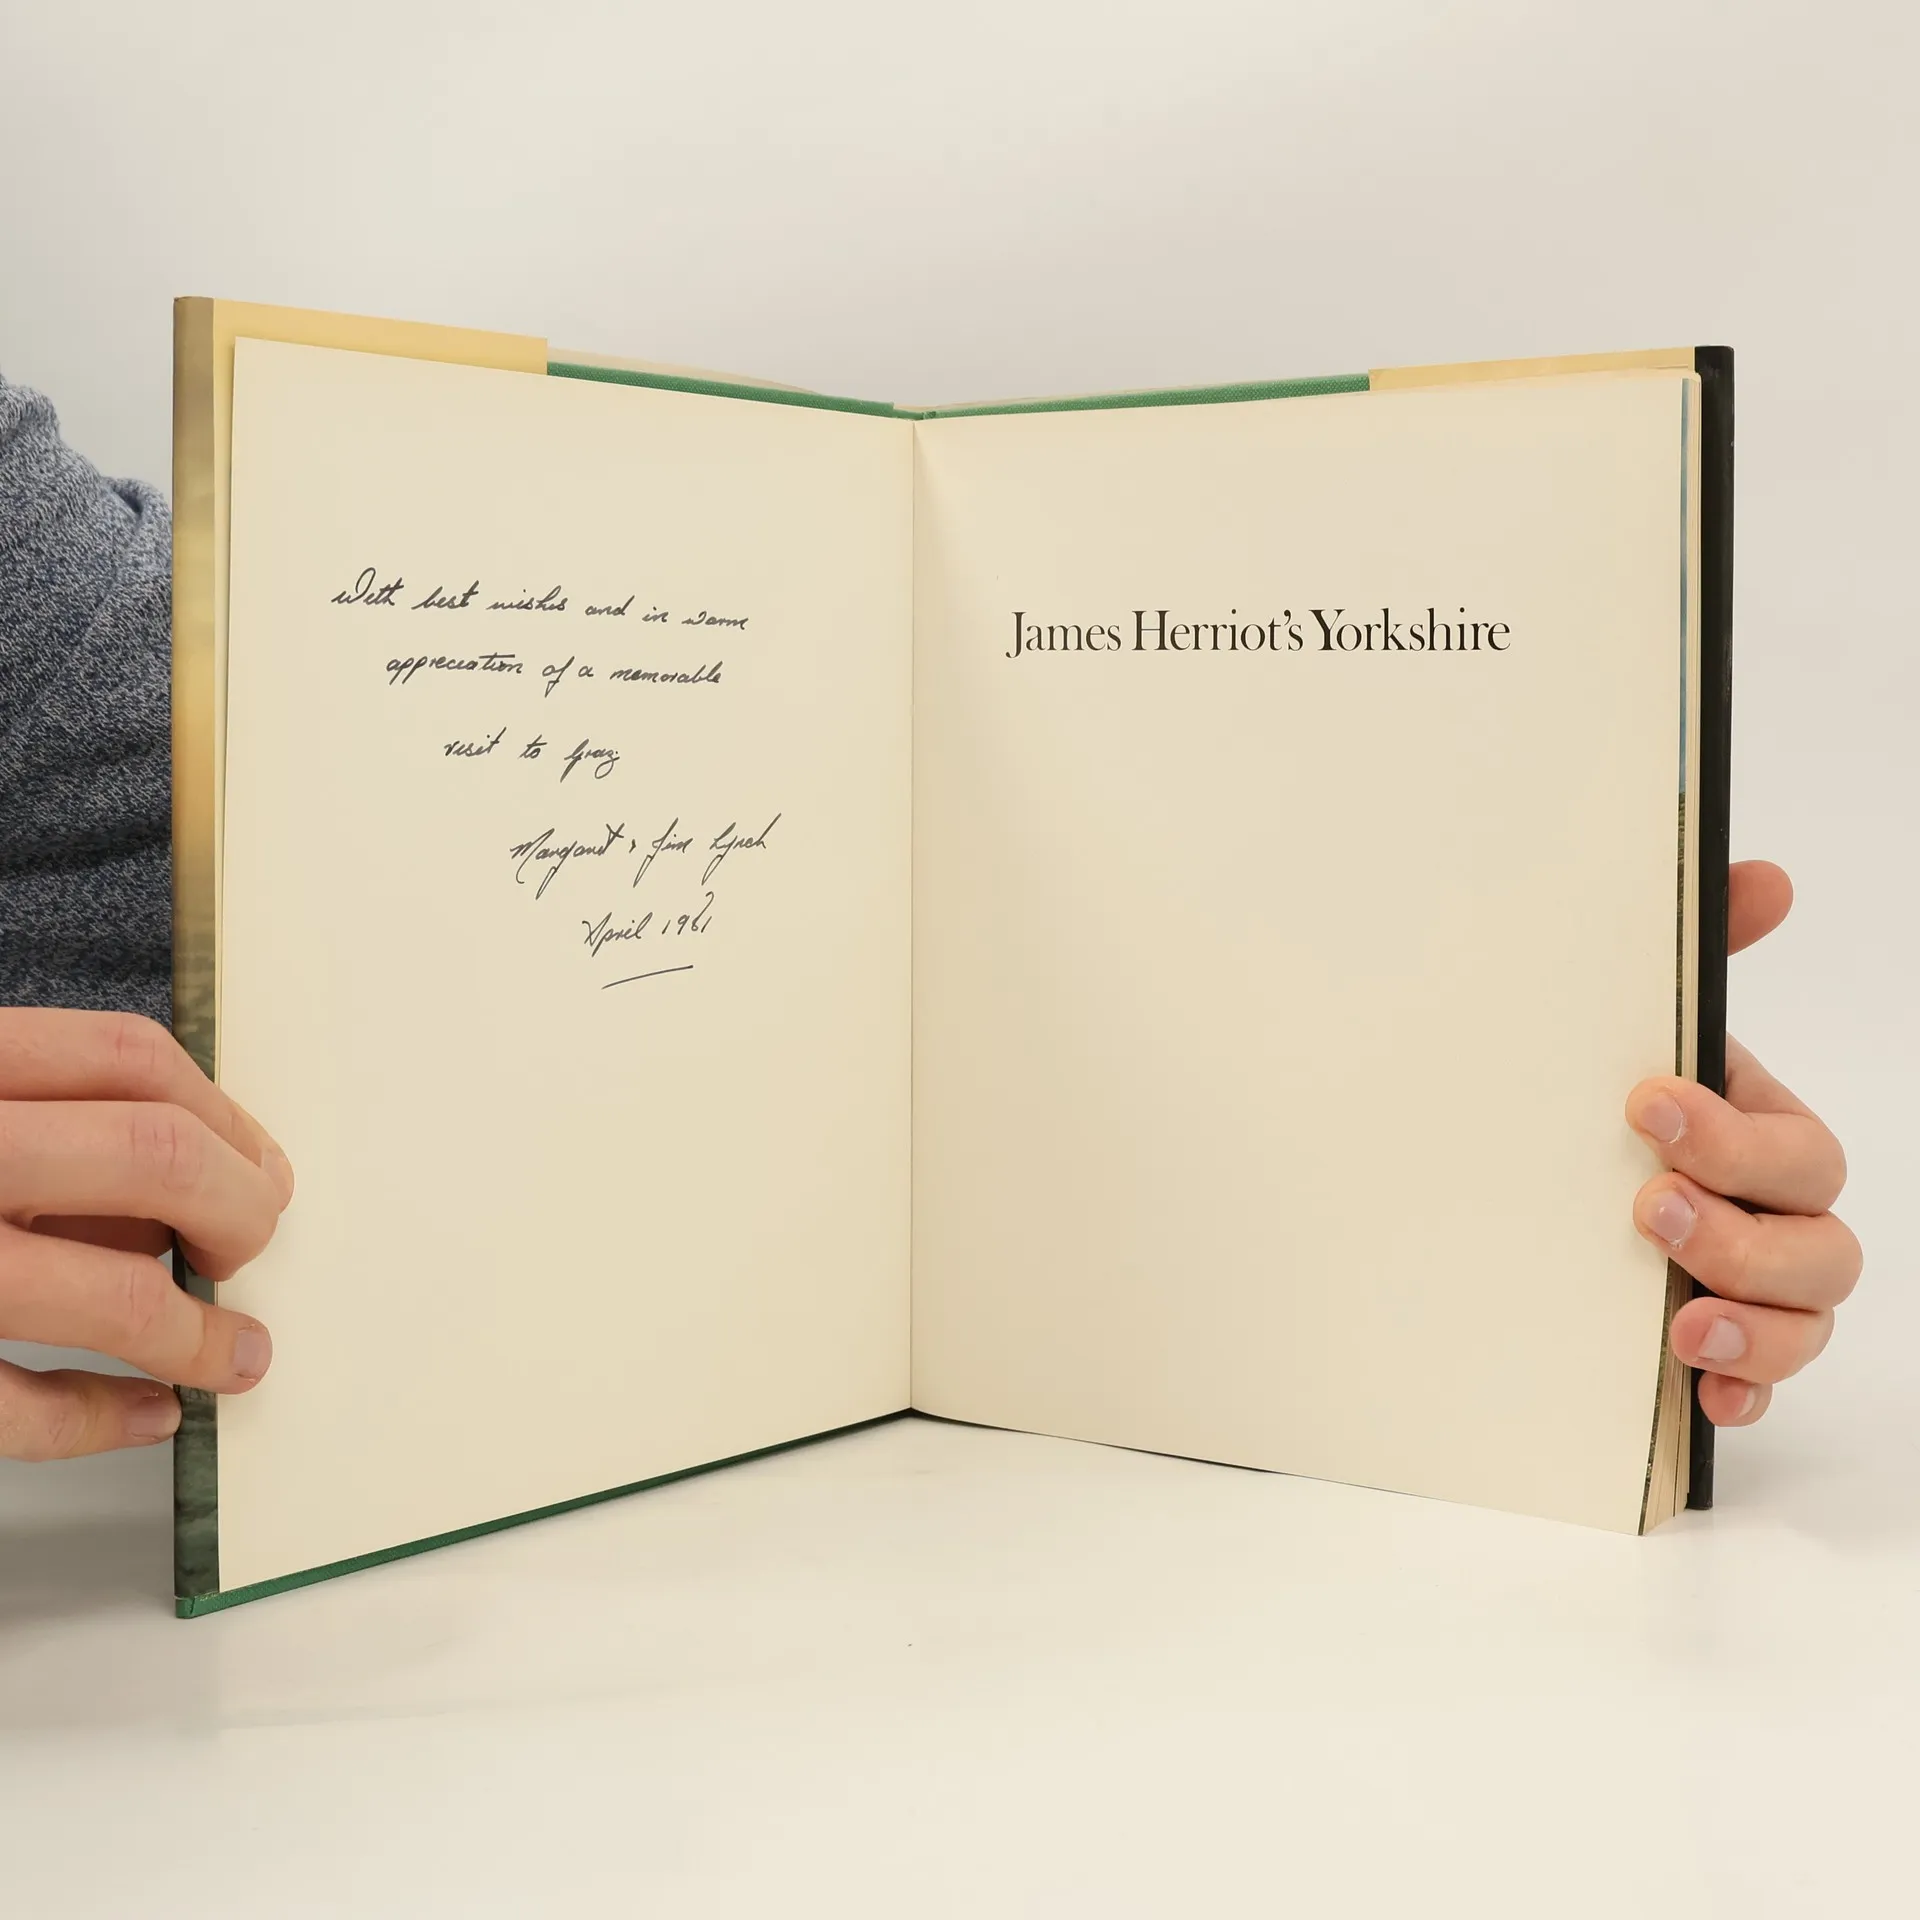 With best wishes and in warm
appreciation of a memorable
visit to Graz
Margaret & Jim Lynch
April 1981
James Herriot's Yorkshire